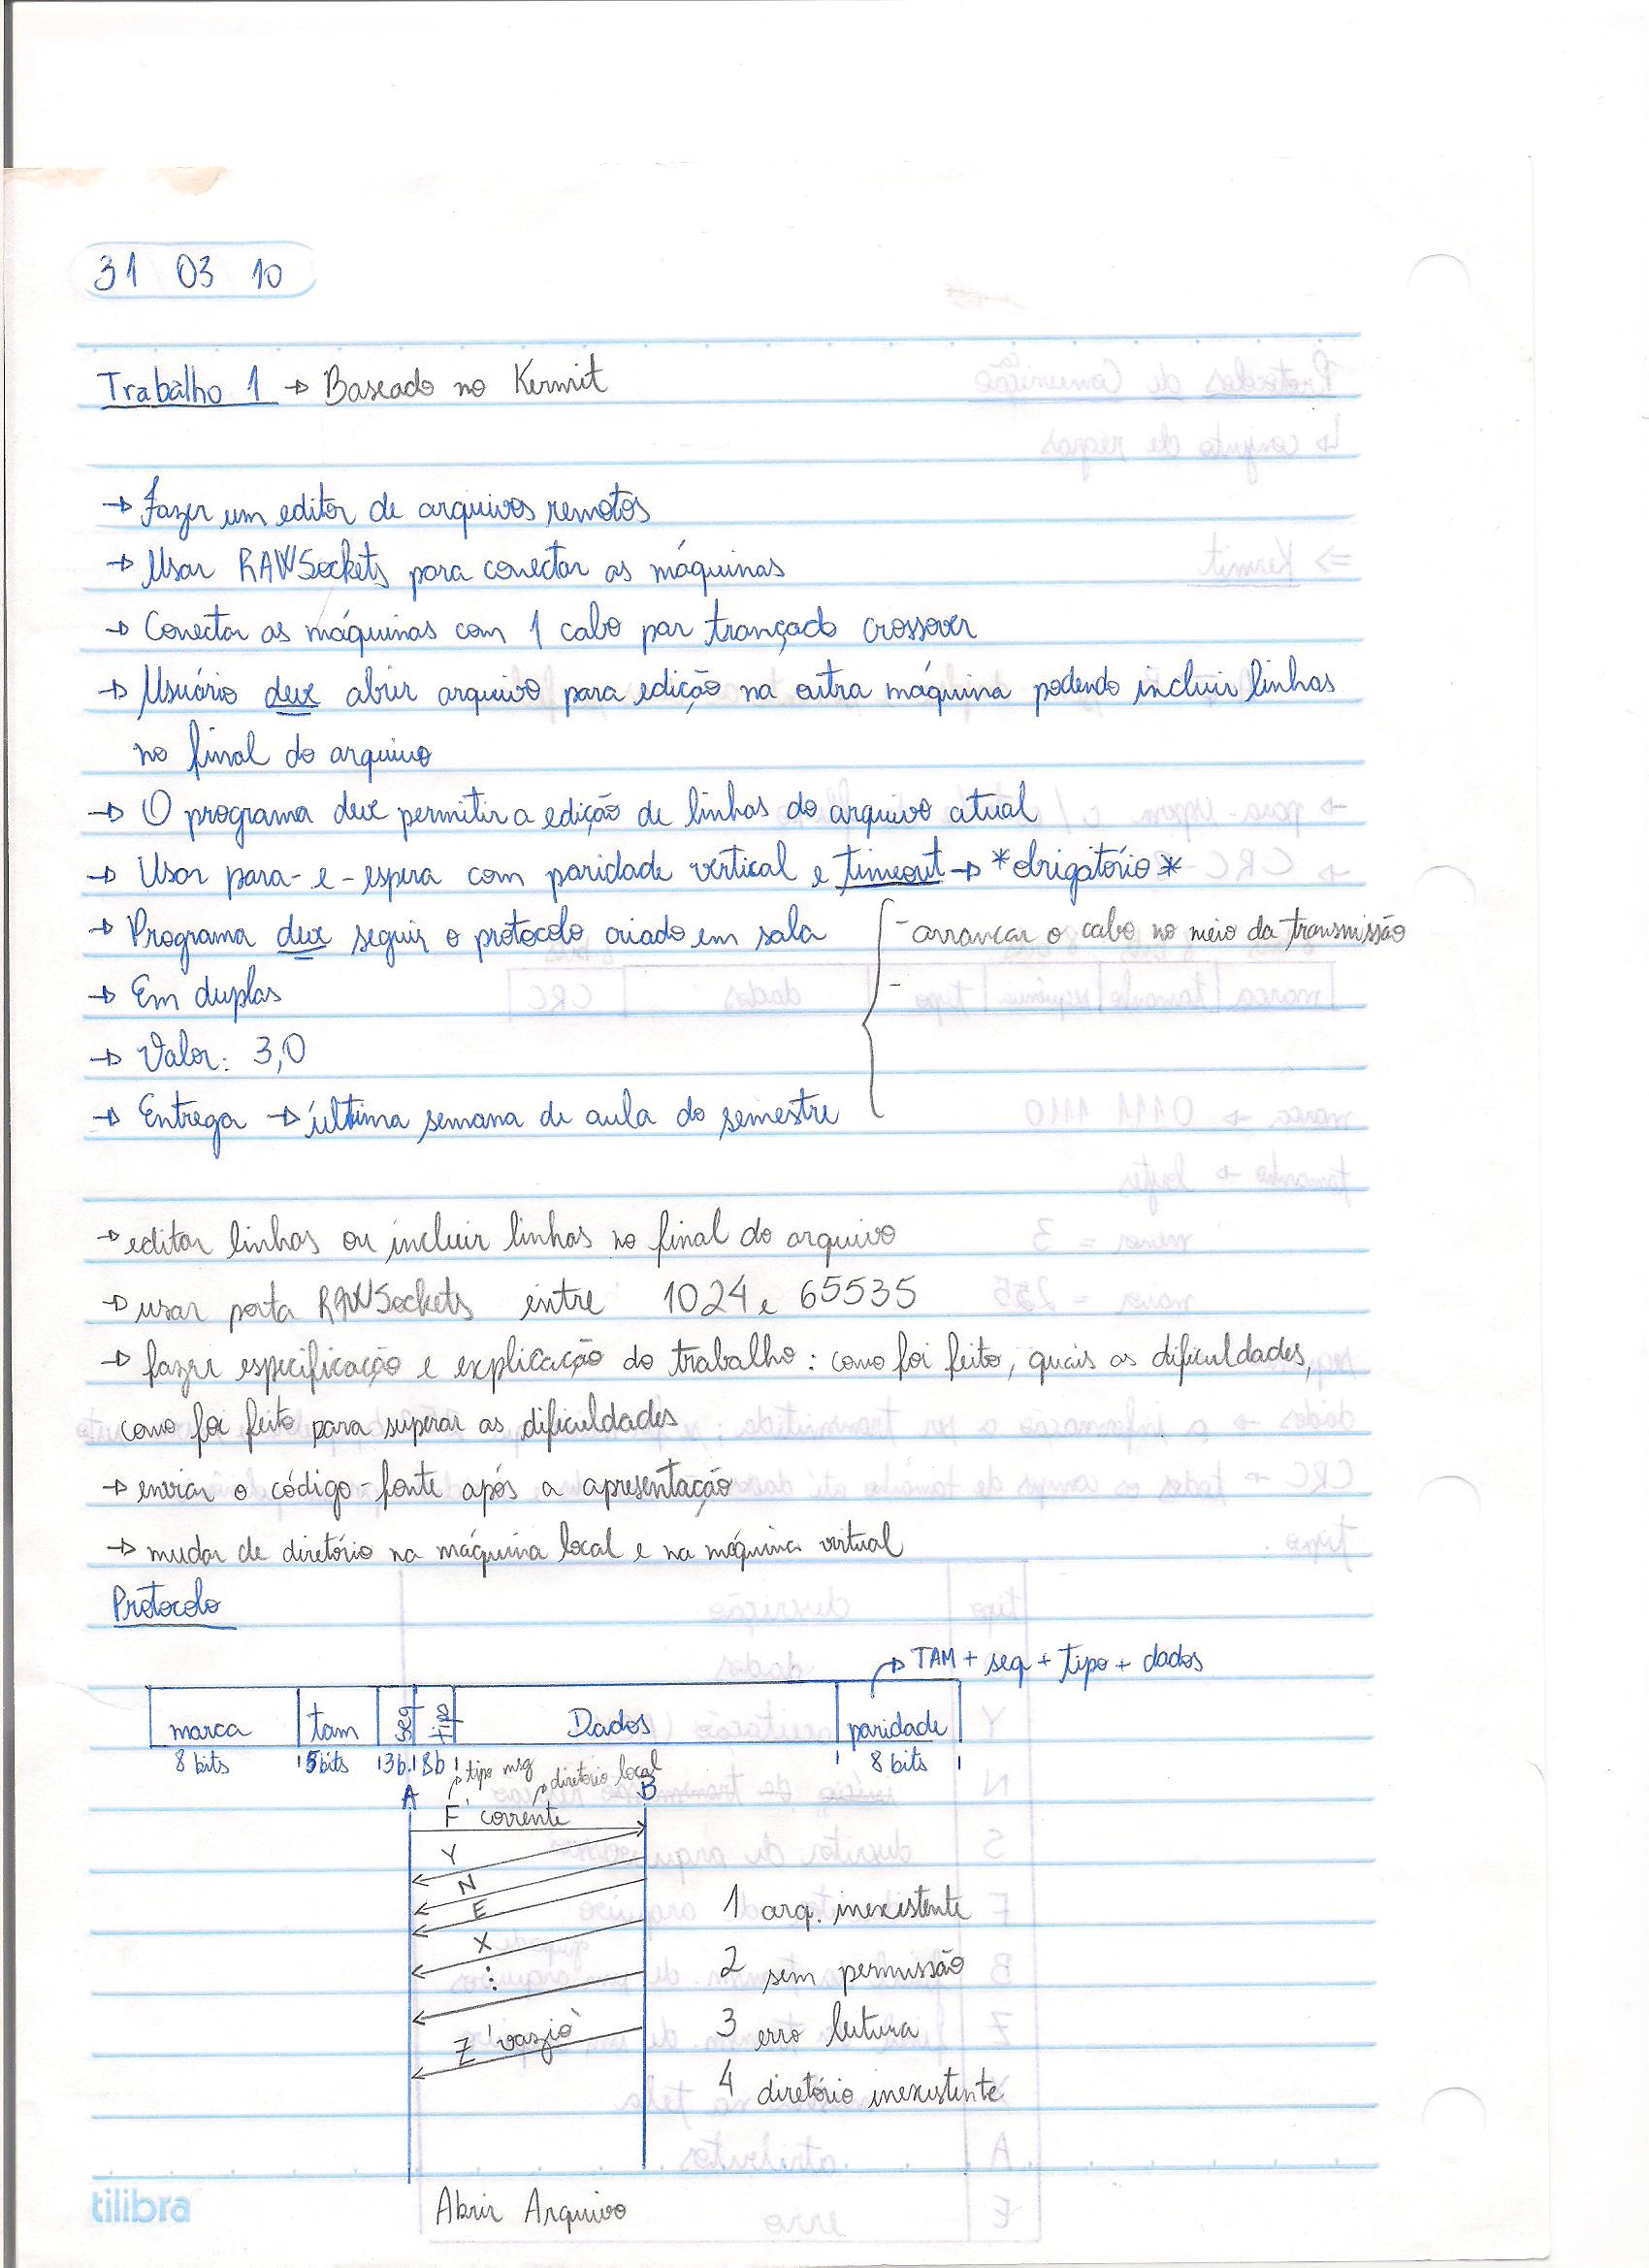 31 03 10
Trabalho 1 → Baseado no Kermit
→ Fazer um editor de arquivos remotos
→ Usar RAWSockets para conectar as máquinas
→ Conectar as máquinas com 1 cabo par trançado crossover
→ Usuário deve abrir arquivo para edição na outra máquina podendo incluir linhas
no final do arquivo
→ O programa deve permitir a edição de linhas do arquivo atual
→ Usar para-e-espera com paridade vertical e timeout → *obrigatório*
→ Programa deve seguir o protocolo criado em sala
- arrancar o cabo no meio da transmissão
-
→ Em duplas
→ Valor: 3,0
→ Entrega → última semana de aula do semestre
→ editar linhas ou incluir linhas no final do arquivo
→ usar porta RAWSockets entre 1024 e 65535
→ fazer especificação e explicação do trabalho: como foi feito, quais as dificuldades,
como foi feito para superar as dificuldades
→ enviar o código-fonte após a apresentação
→ mudar de diretório na máquina local e na máquina virtual
Protocolo
→ TAM + seq + tipo + dados
marca tam seq tipo Dados paridade
8 bits 5 bits 3b. 8b 8 bits
→ tipo msg → diretório local
A B
F 'corrente
Y
N
E
X
⋮
Z 'vazio'
1 arq. inexistente
2 sem permissão
3 erro leitura
4 diretório inexistente
Abrir Arquivo
tilibra